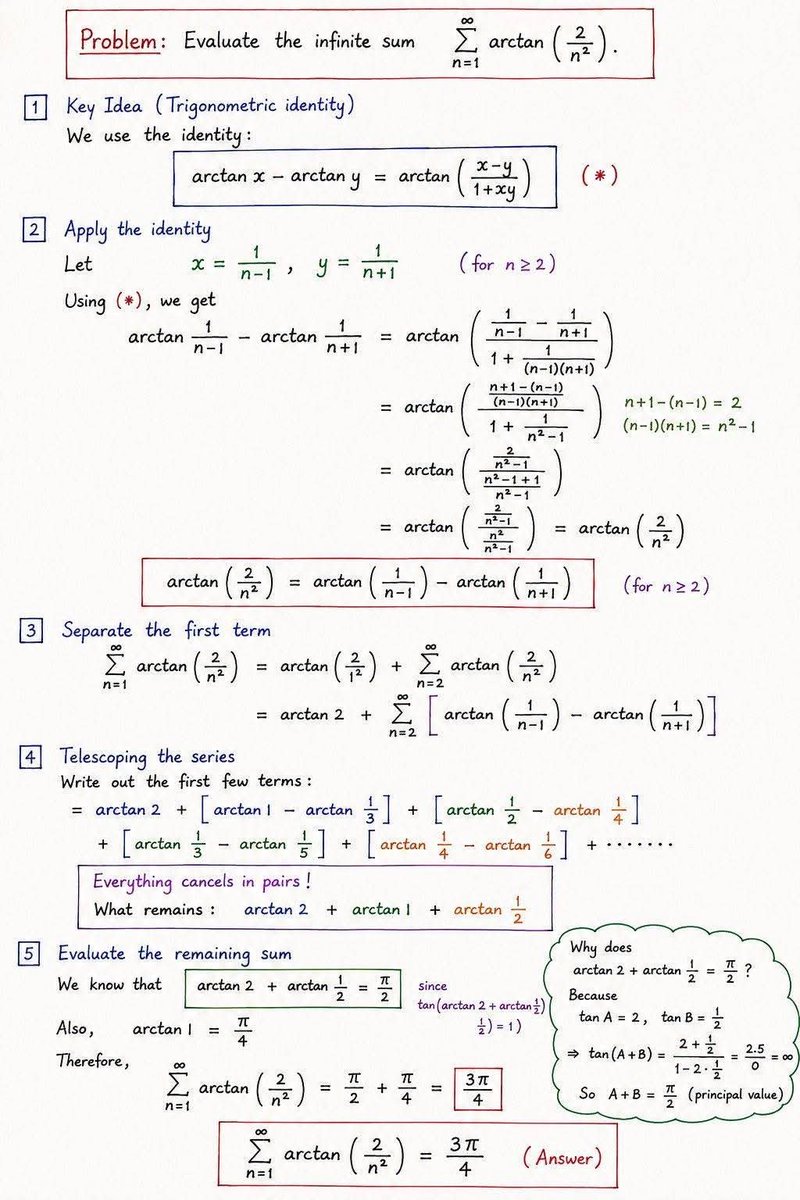 Problem: Evaluate the infinite sum ∑_{n=1}^{∞} arctan (2/n²).
1 Key Idea (Trigonometric identity)
We use the identity:
arctan x − arctan y = arctan ((x−y)/(1+xy)) (*)
2 Apply the identity
Let x = 1/(n−1), y = 1/(n+1) (for n ≥ 2)
Using (*), we get
arctan 1/(n−1) − arctan 1/(n+1) = arctan ((1/(n−1) − 1/(n+1))/(1 + 1/((n−1)(n+1))))
= arctan (((n+1−(n−1))/((n−1)(n+1)))/(1 + 1/(n²−1))) n+1−(n−1) = 2
(n−1)(n+1) = n²−1
= arctan ((2/(n²−1))/((n²−1+1)/(n²−1)))
= arctan ((2/(n²−1))/(n²/(n²−1))) = arctan (2/n²)
arctan (2/n²) = arctan (1/(n−1)) − arctan (1/(n+1)) (for n ≥ 2)
3 Separate the first term
∑_{n=1}^{∞} arctan (2/n²) = arctan (2/1²) + ∑_{n=2}^{∞} arctan (2/n²)
= arctan 2 + ∑_{n=2}^{∞} [arctan (1/(n−1)) − arctan (1/(n+1))]
4 Telescoping the series
Write out the first few terms:
= arctan 2 + [arctan 1 − arctan 1/3] + [arctan 1/2 − arctan 1/4]
+ [arctan 1/3 − arctan 1/5] + [arctan 1/4 − arctan 1/6] + ·······
Everything cancels in pairs!
What remains: arctan 2 + arctan 1 + arctan 1/2
5 Evaluate the remaining sum
We know that arctan 2 + arctan 1/2 = π/2 since
tan(arctan 2 + arctan 1/2)
1/2) = 1)
Also, arctan 1 = π/4
Therefore,
∑_{n=1}^{∞} arctan (2/n²) = π/2 + π/4 = 3π/4
Why does
arctan 2 + arctan 1/2 = π/2 ?
Because
tan A = 2, tan B = 1/2
⇒ tan(A+B) = (2 + 1/2)/(1−2·1/2) = 2.5/0 = ∞
So A+B = π/2 (principal value)
∑_{n=1}^{∞} arctan (2/n²) = 3π/4 (Answer)